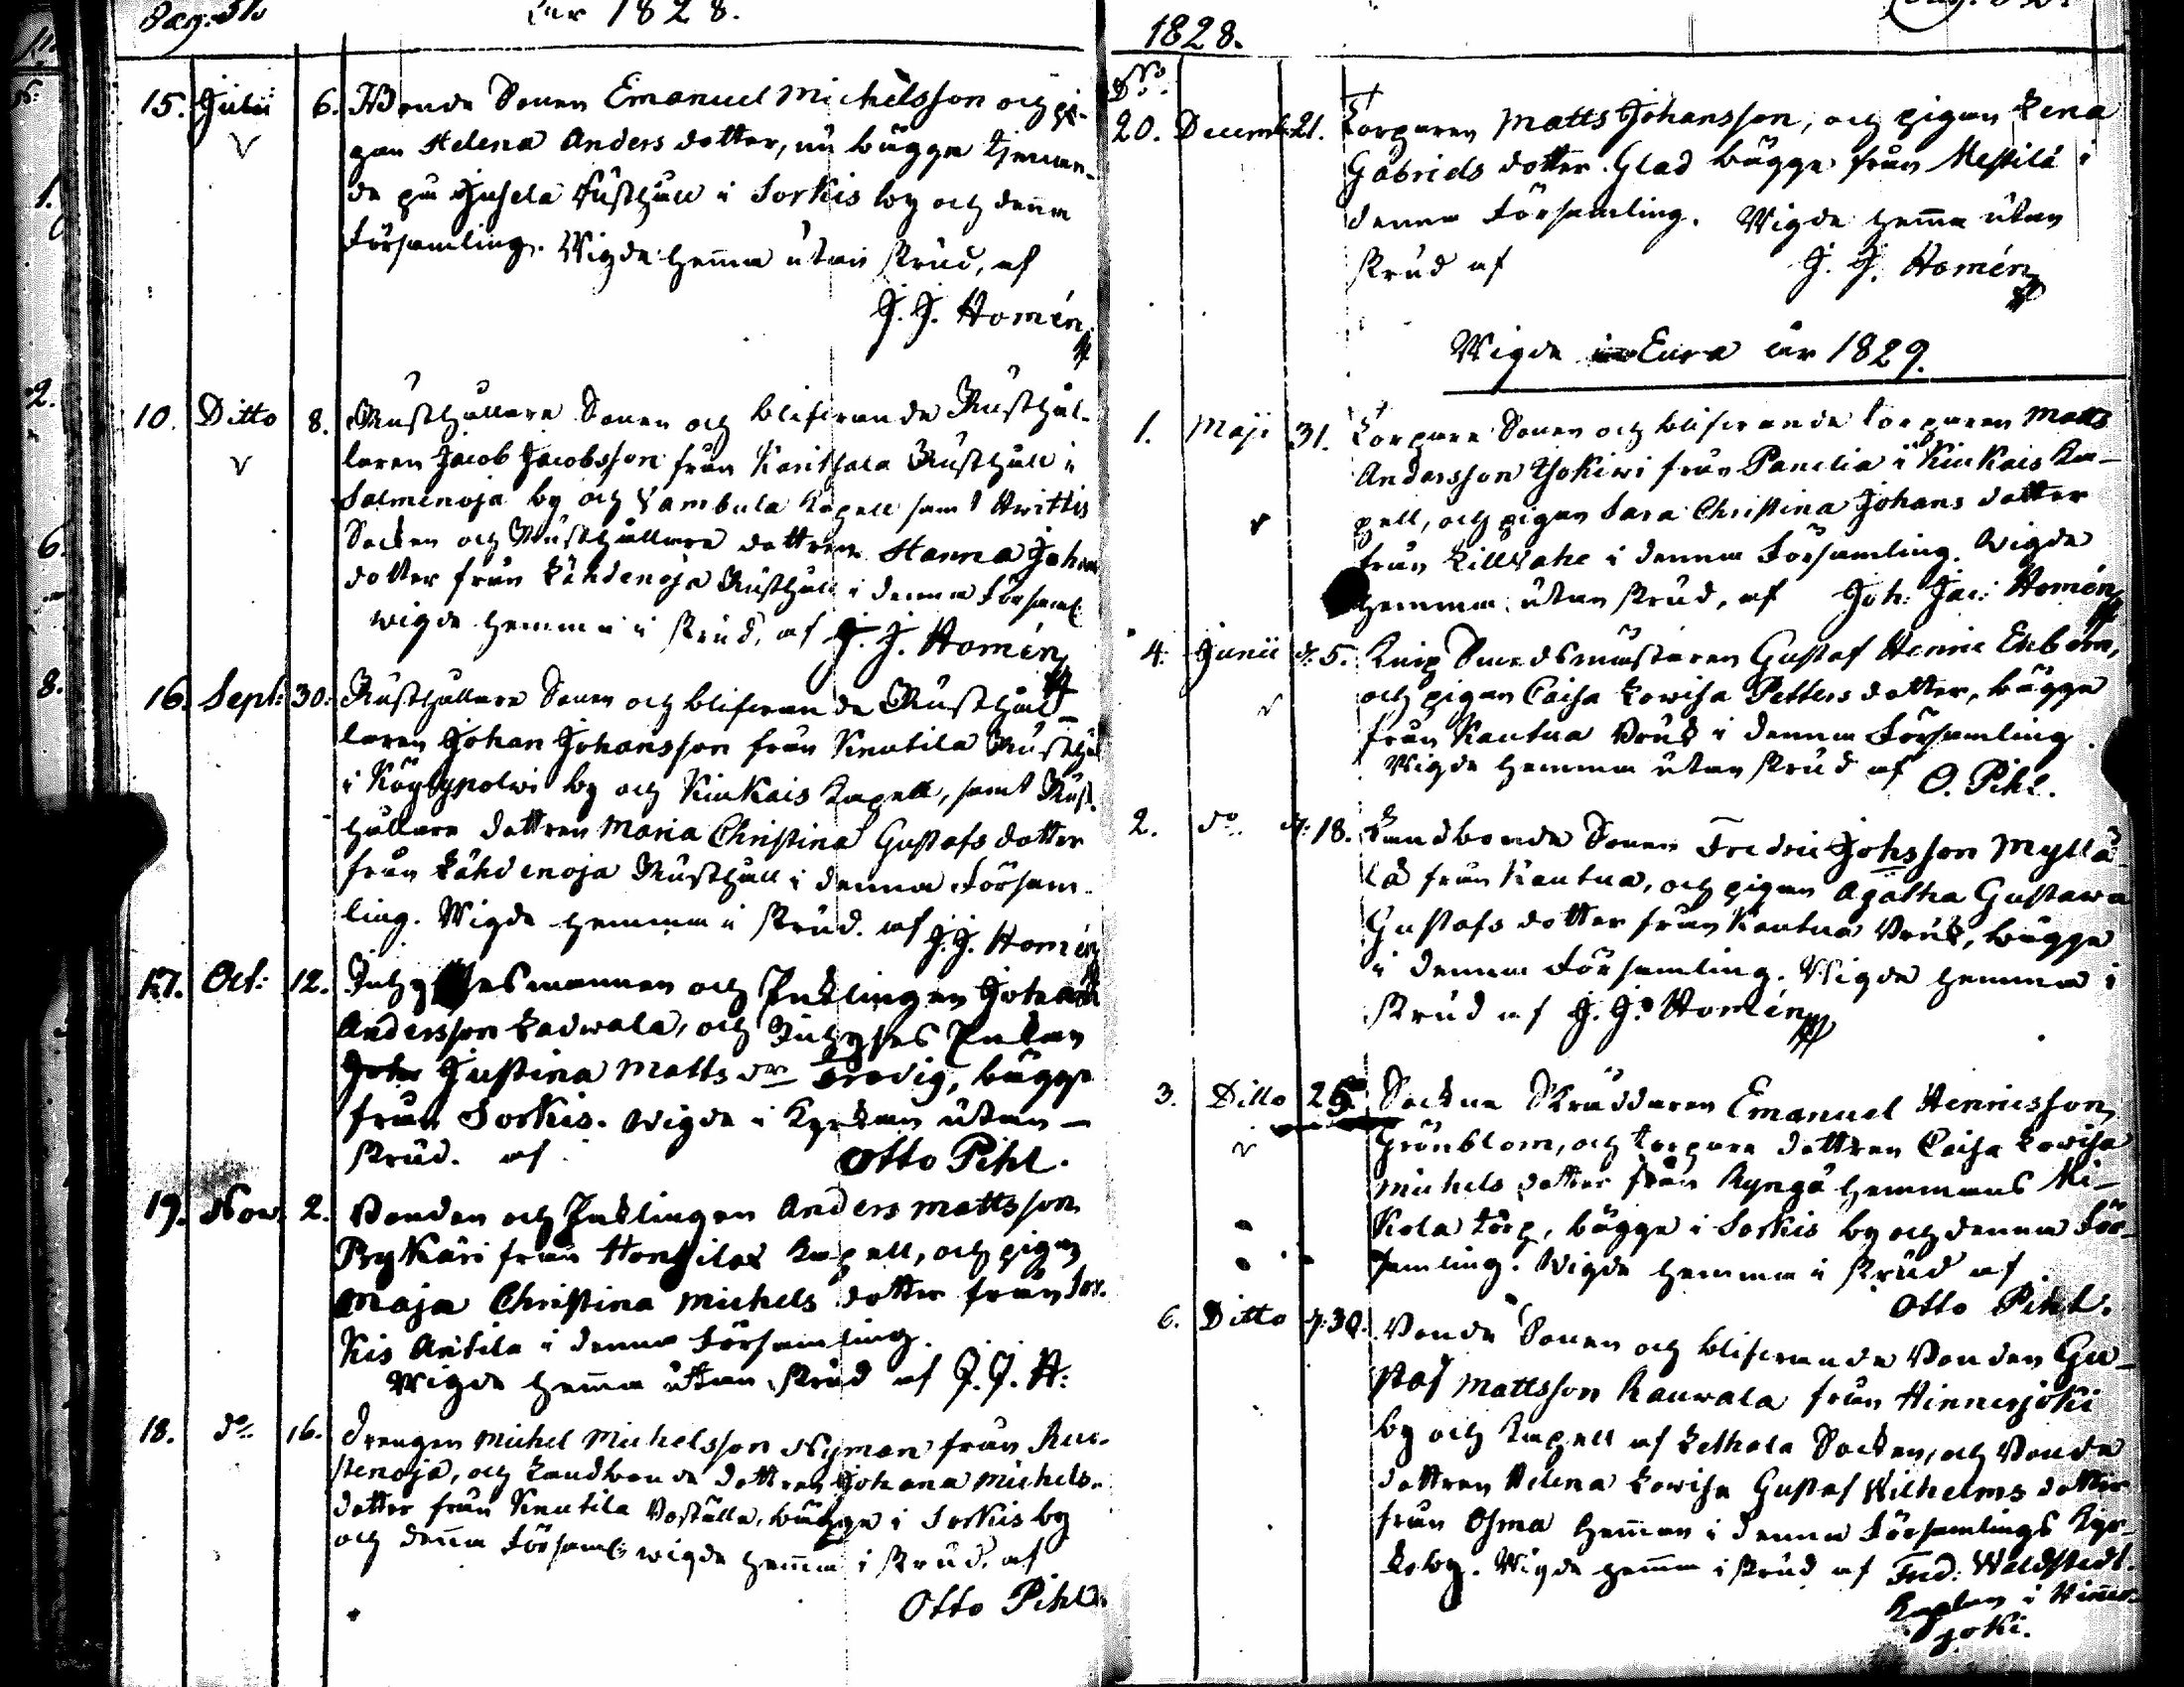 Pag. 
år 1828.
15. Julii 6. Bonde Sonen Emanuel Michelsson och pi-
gan Helena Anders dotter, nu bägge tjenan-
de på Rusthåll i Sorkis by och denna
Församling. Wigde hemma utan skrud, af
J. J. Homén
10. Ditto 8. Rusthållare Sonen och blifvande Rusthål-
laren Jacob Jacobsson från Karitsala Rusthåll i
Salmenoja by och Vambula Kapell samt Hvittis
Socken och Rusthållare dottren Hanna Johans
dotter från Lähdenoja Rusthåll i denna Församl:
wigde hemma i skrud, af J. J. Homén
16. Sept: 30. Rusthållare Sonen och blifvande Rusthål-
laren Johan Johansson från Knutila Rusthåll
i Köylypolwi by och Kiukais Kapell, samt Rust-
hållare dottren Maria Christina Gustafs dotter
från Lähdenoja Rusthåll i denna Försam-
ling. Wigde hemma i skrud. af J. J. Homén
17. Oct: 12. Inhysesmannen och Enklingen Johan
Andersson Ladwala, och Inhyses Enkan
Justina Matts dr bägge
från Sorkis. Wigde i Kyrkan utan
skrud. af Otto Pihl.
19. Nov. 2. Bonden och Enklingen Anders Mattsson
Prykäri från Honkilax Kapell, och pigan
Maja Christina Michels dotter från Sor-
kis Antila i denna Församling.
Wigde hemma utan skrud af J. J. H:
18. do 16. Drengen Michel Michelsson Nyman från Ruo-
stenoja, och Landbonde dottren Johana Michels-
dotter från Knutila Boställe, bägge i Sorkis by
och denna Församl: wigde hemma i skrud. af
Otto Pihl.
1828.
No.
20. Decemb. 21. Torparen Matts Johansson, och pigan Lena
Gabriels dotter Glad bägge från Mestilä i
denna Församling. Wigde hemma utan
skrud af J. J. Homén
Wigde i Eura år 1829.
1. Maji 31. Torpare Sonen och blifvande torparen Matts
Andersson Isokiwi från Panelia i Kiukais Ka-
pell, och pigan Sara Christina Johans dotter
från Lillsahe i denna Församling. Wigde
hemma utan skrud, af Joh: Jac: Homén
4. Junii d: 5. Knip Smedsmästaren Gustaf Henric Ekbom,
och pigan Caisa Lowisa Petters dotter, bägge
från Kautua Bruk i denna Församling.
Wigde hemma utan skrud af O. Pihl.
2. do d: 18. Landbonde Sonen Fredric Johsson Myllä-
lä från Kautua, och pigan Agatha Gustawa
Gustafs dotter från Kautua Bruk, bägge
i denna Församling. Wigde hemma i
skrud af J. J. Homén
3. Ditto 25. Sockne Skräddaren Emanuel Henricsson
Grönblom, och torpare dottren Caisa Lowisa
Michels dotter från Ryngö hemmans Ni-
kola torp, bägge i Sorkis by och denna För-
samling. Wigde hemma i skrud af
Otto Pihl.
6. Ditto d: 30. Bonde Sonen och blifvande Bonden Gu-
staf Mattsson Kauwala från Hinnerjoki
by och Kapell af Lethala Socken, och Bonde
dottren Helena Lowisa Gustaf Wilhelms dotter
från Osma hemman i denna Församlings Kyr-
koby. Wigde hemma i skrud af Fred: Waldstedt.
Kaplan i Hinner-
joki.